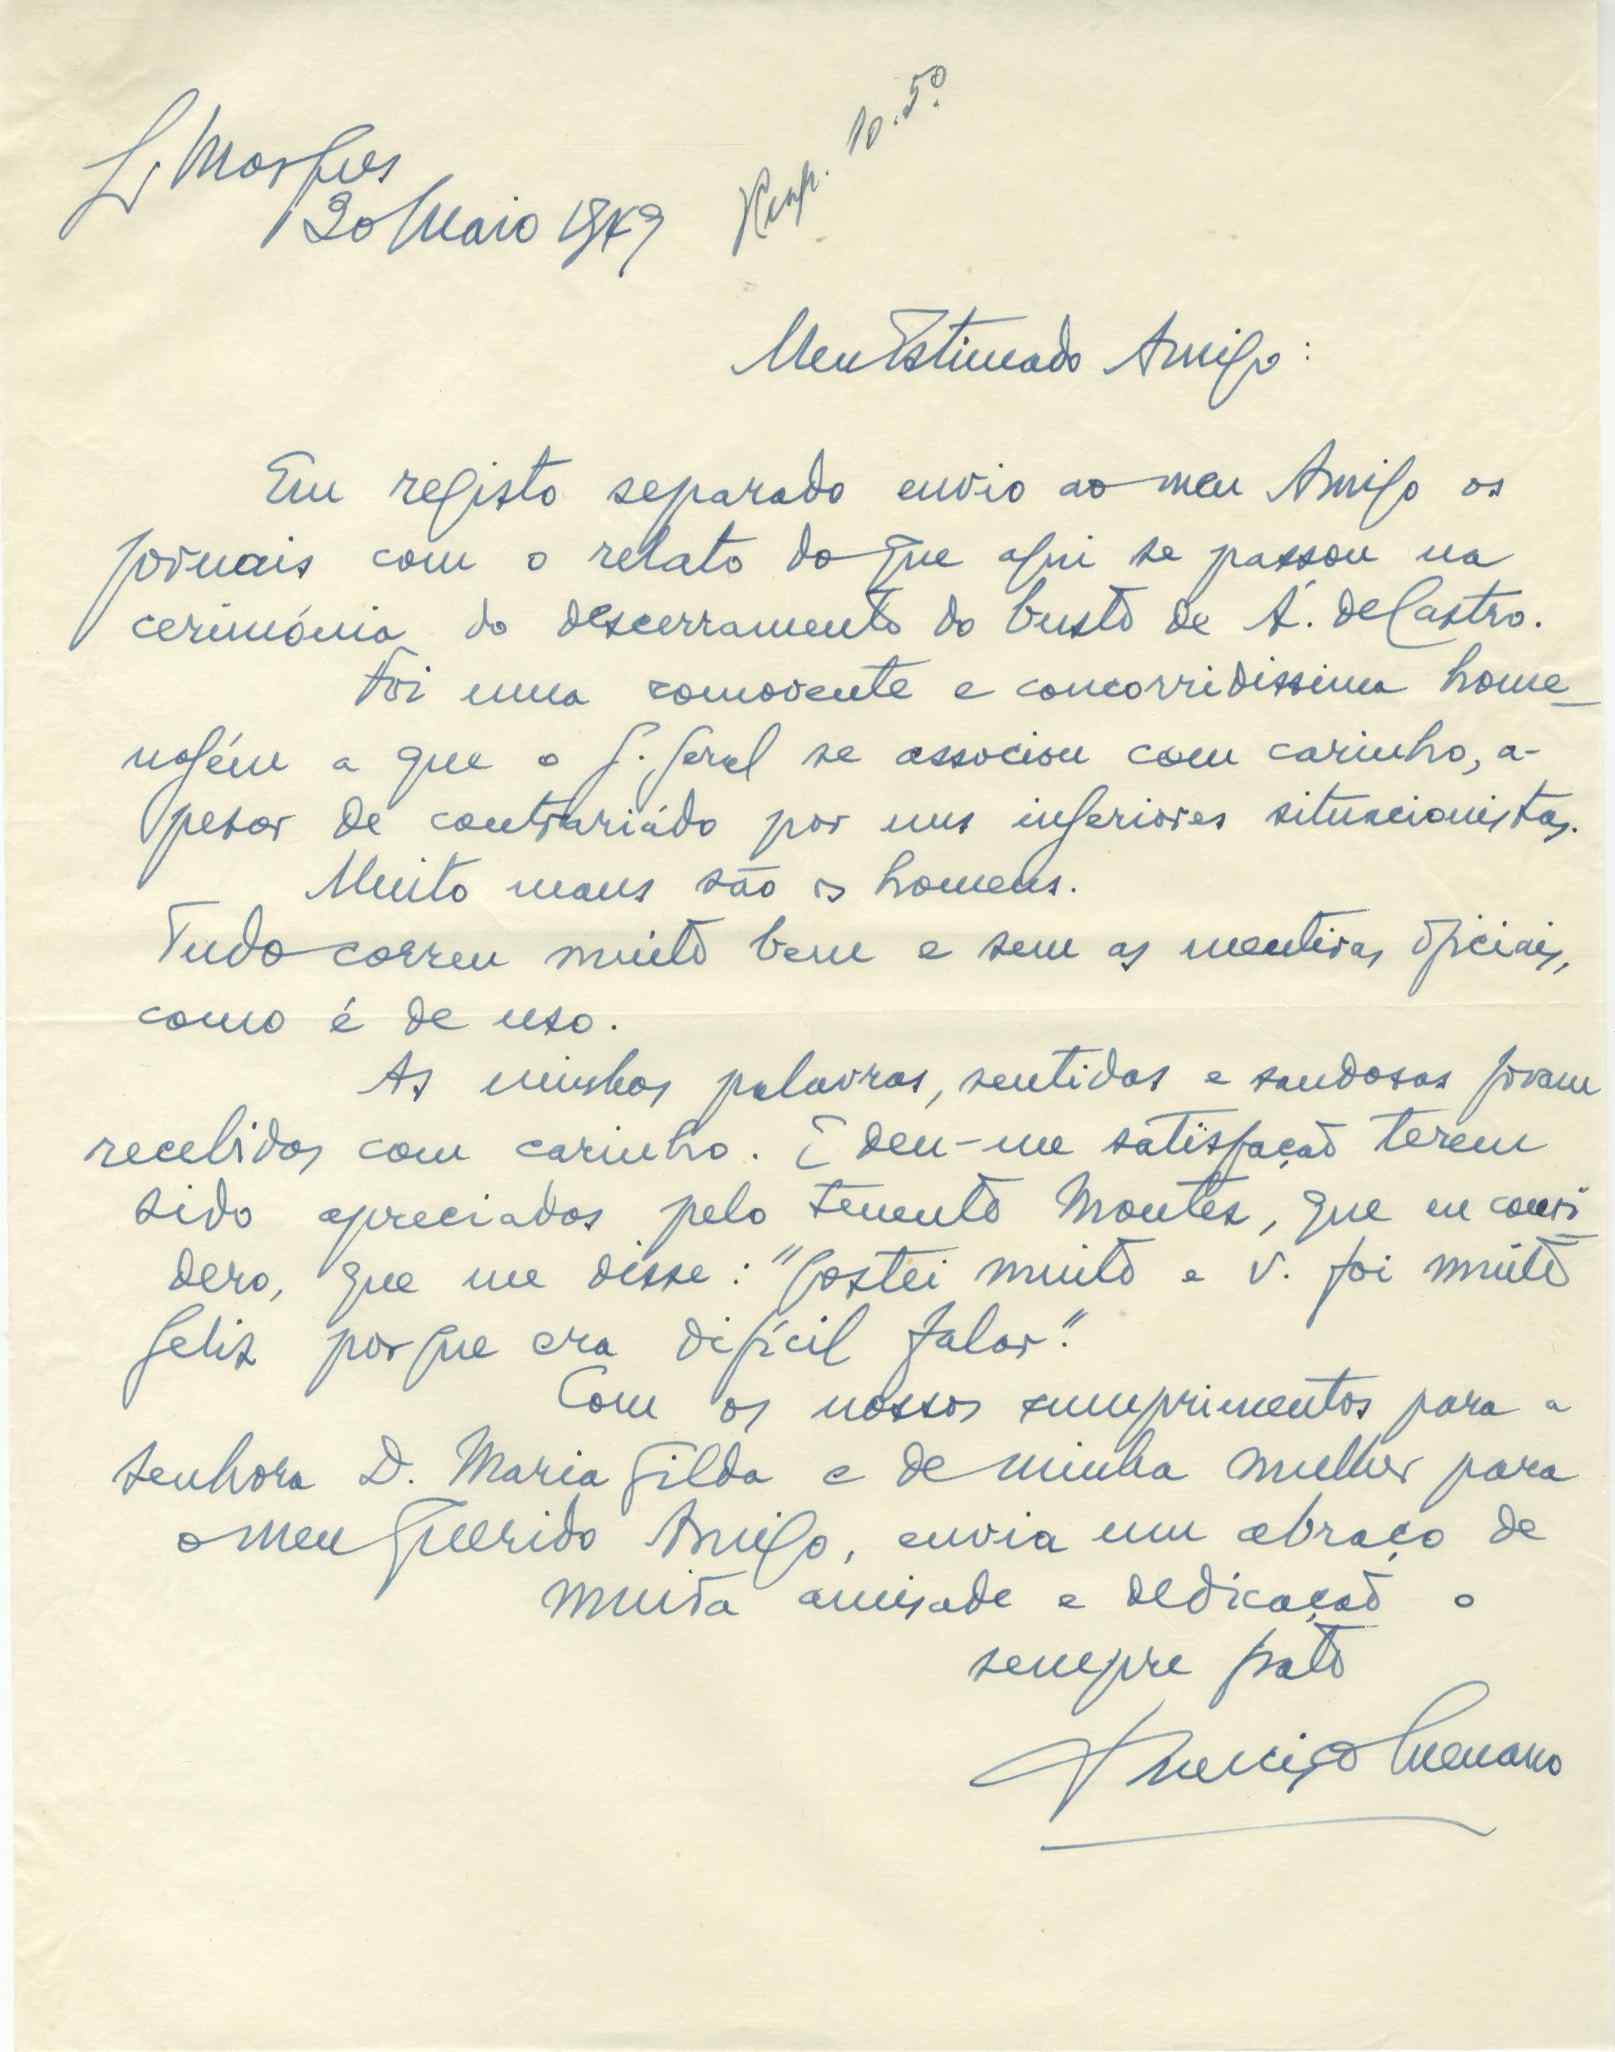 L. Marques
30 Maio 1949
Resp. 10.5º
Meu Estimado Amigo:
Em registo separado envio ao meu Amigo os
jornais com o relato do que aqui se passou na
cerimónia do descerramento do busto de Á. de Castro.
Foi uma comovente e concorridissima home-
nagém a que o G. Geral se associou com carinho, a-
pesar de contrariádo por uns inferiores situacionistas.
Muito maus são os homens.
Tudo correu muito bem e sem as mentiras oficiais,
como é de uso.
As minhas palavras, sentidas e saudosas foram
recebidas com carinho. E deu-me satisfação terem
sido apreciadas pelo Tenente Montez, que eu consi-
dero, que me disse: "Gostei muito e V. foi muito
feliz porque era difícil falar."
Com os nossos cumprimentos para a
senhora D. Maria Gilda e de minha mulher para
o meu Querido Amigo, envia um abraço de
muita amisade e dedicação o
sempre grato